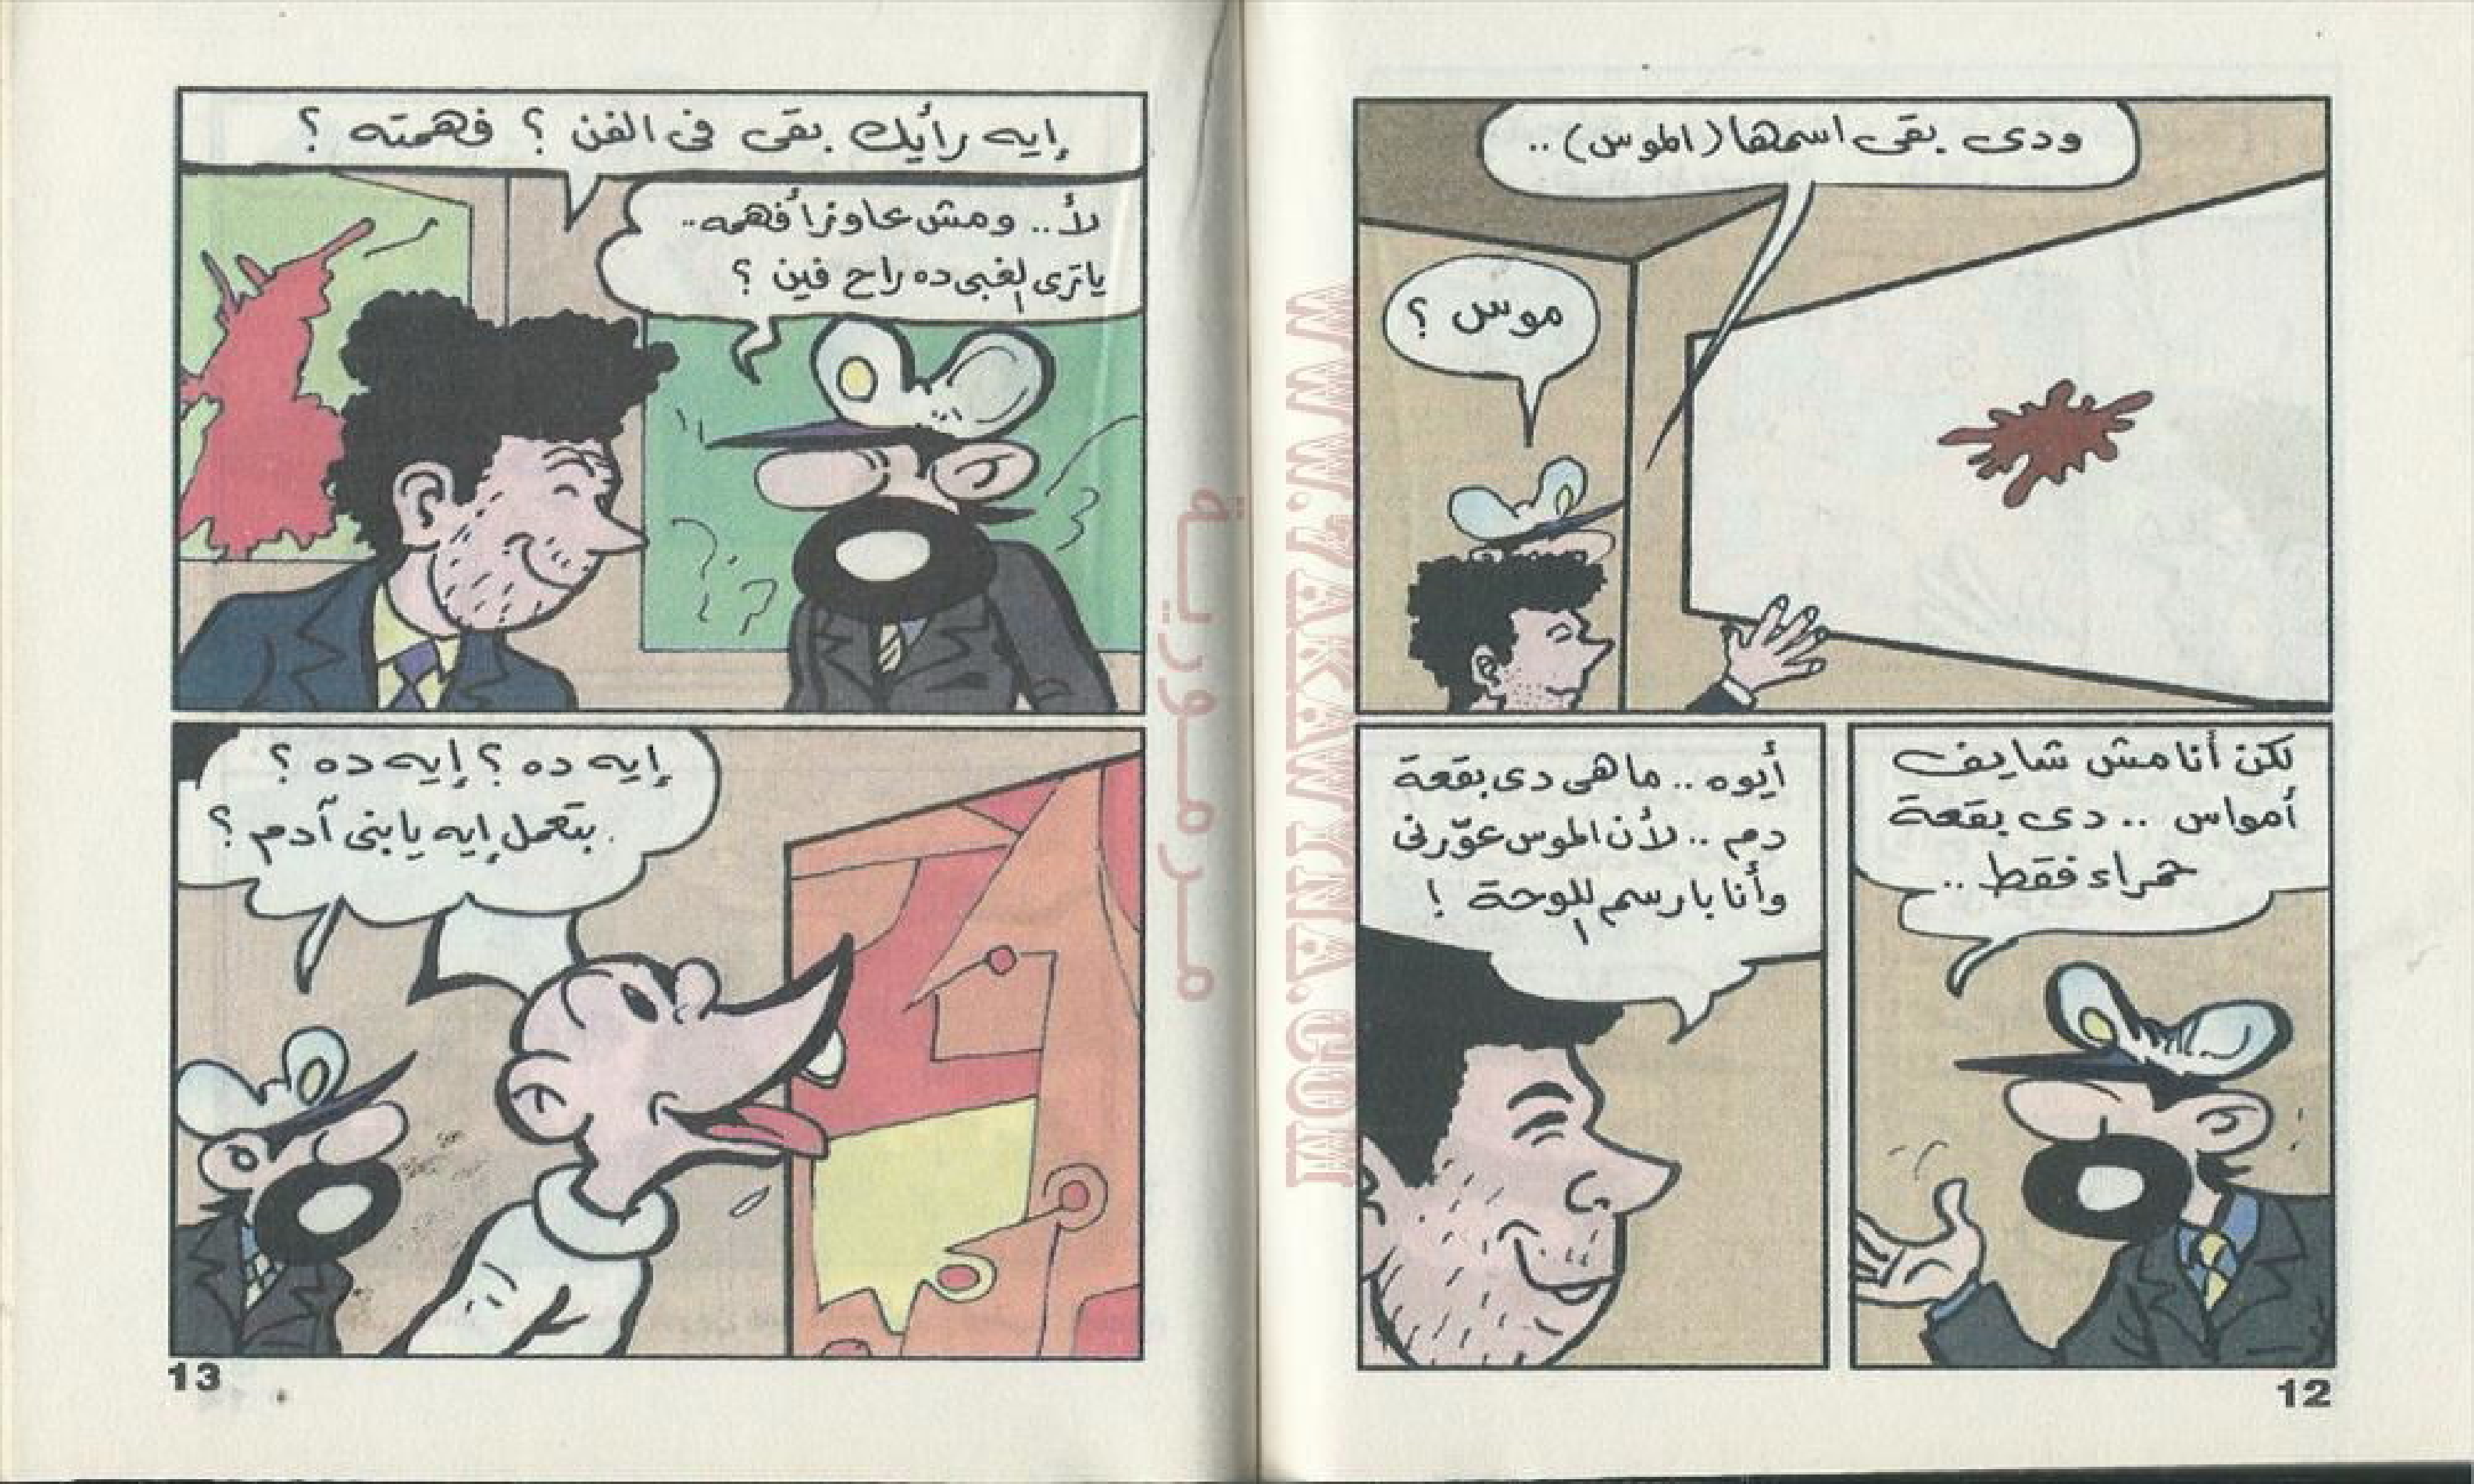 ودى بقى اسمها (الموس)..
موس؟
لكن أنا مش شايف
أمواس .. دى بقعة
حمراء فقط ..
أيوه .. ما هى دى بقعة
دم .. لأن الموس عوّرنى
وأنا بارسم اللوحة !
12
WWW.ZAKAWINA.COM
مرمورية
إيه رأيك بقى فى الفن ؟ فهمته ؟
لأ .. ومش عاوز أفهمه ..
ياترى الغبى ده راح فين ؟
إيه ده ؟ إيه ده ؟
بتعمل إيه يا بنى آدم ؟
13